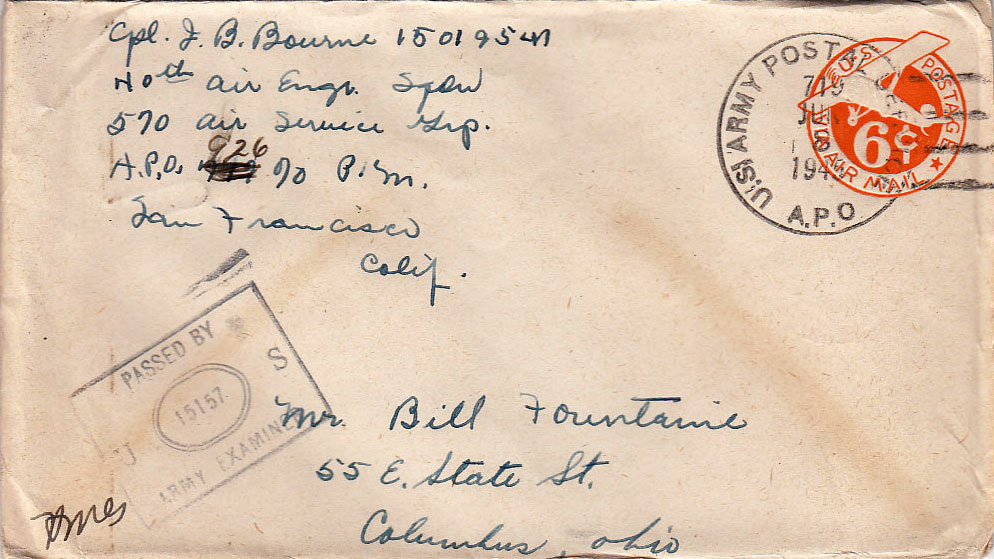 Cpl. J. B. Bourne 15019541
40th Air Engr. Sqdn
570 Air Service Grp.
A.P.O. 926 c/o P.M.
San Francisco
Calif.
U.S. ARMY POSTAL
719
JUN
194
A.P.O
U.S. POSTAGE
6¢
VIA AIR MAIL
PASSED BY
U S
15157
ARMY EXAMINER
Mr. Bill Fountaine
55 E. State St.
Columbus, Ohio